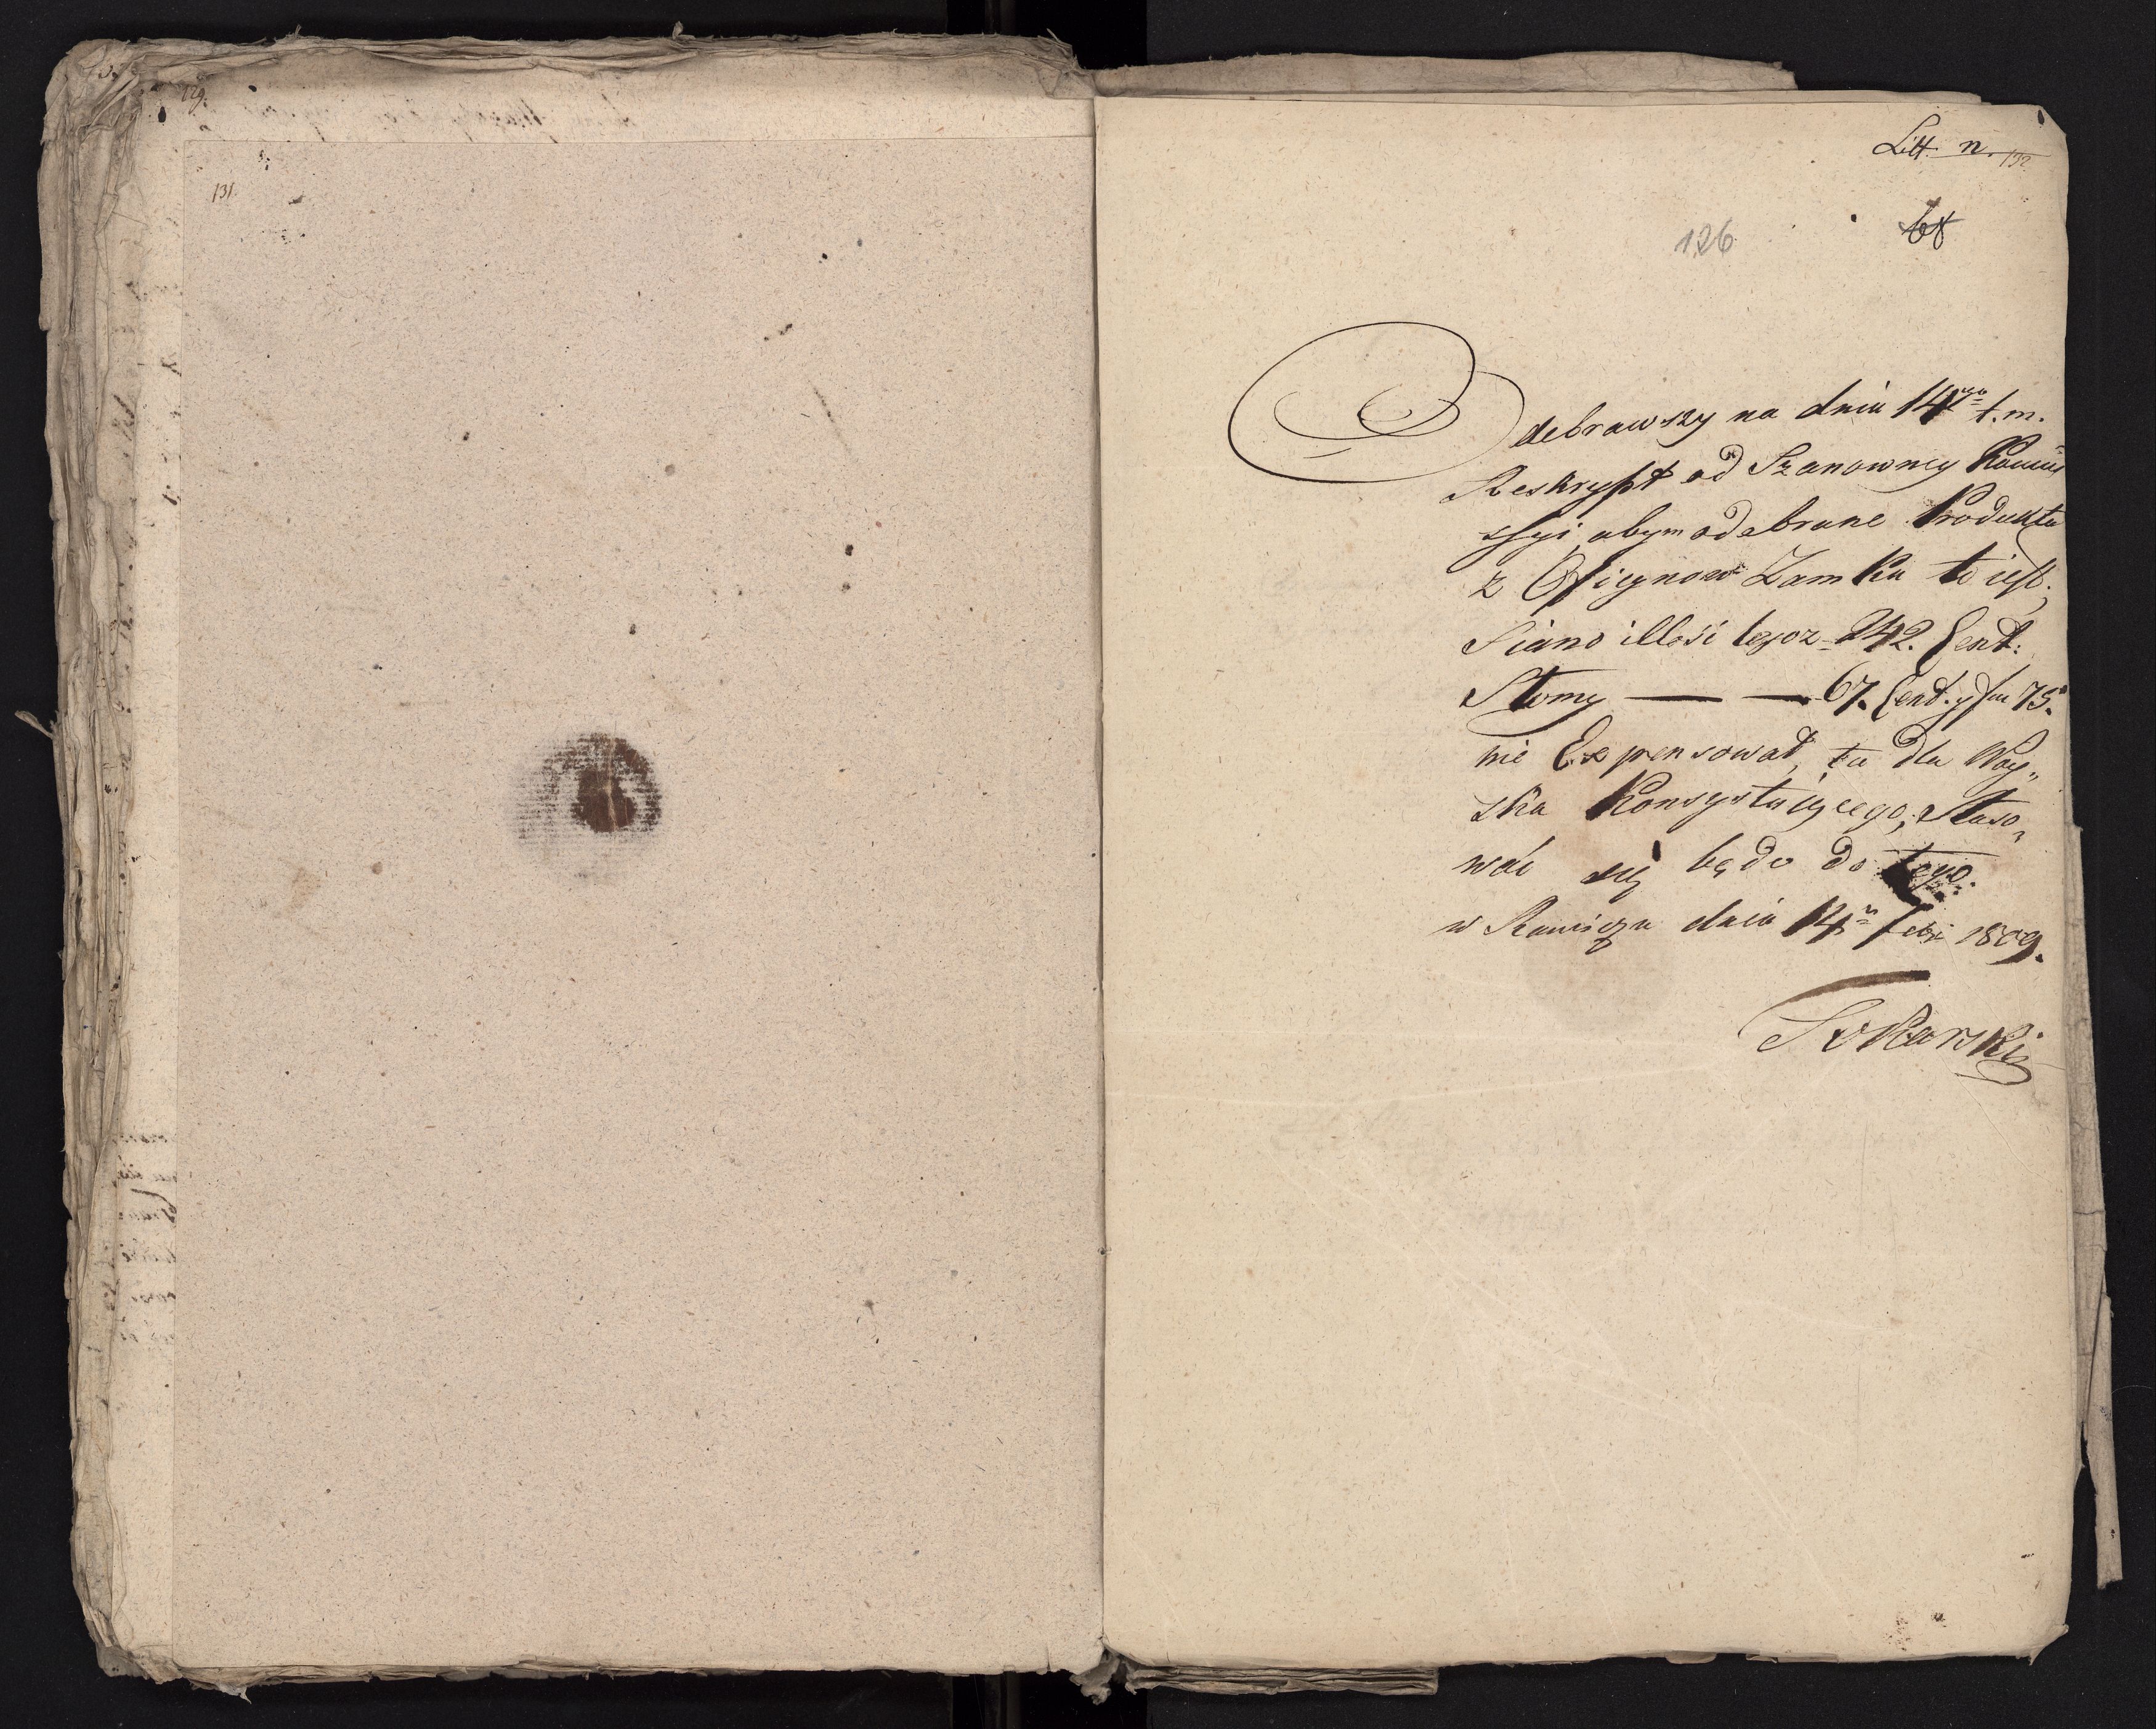 129.
131.
Litt. n. 132
68
126
Odebrawszy na dniu 14go t. m.
Reskrypt od Szanowney Kommis
ssyi, abym odebrane Produkta
z Zamku to iest.
Siano illości tegoz = 242. Cent:
Słomy — — 67. Cent. y fun 75.
nie Expensował, tu dla Woy„
ska Konsystuiącego, Staso„
wać się będę do tego.
w Rawiczu dnia 14 1809.